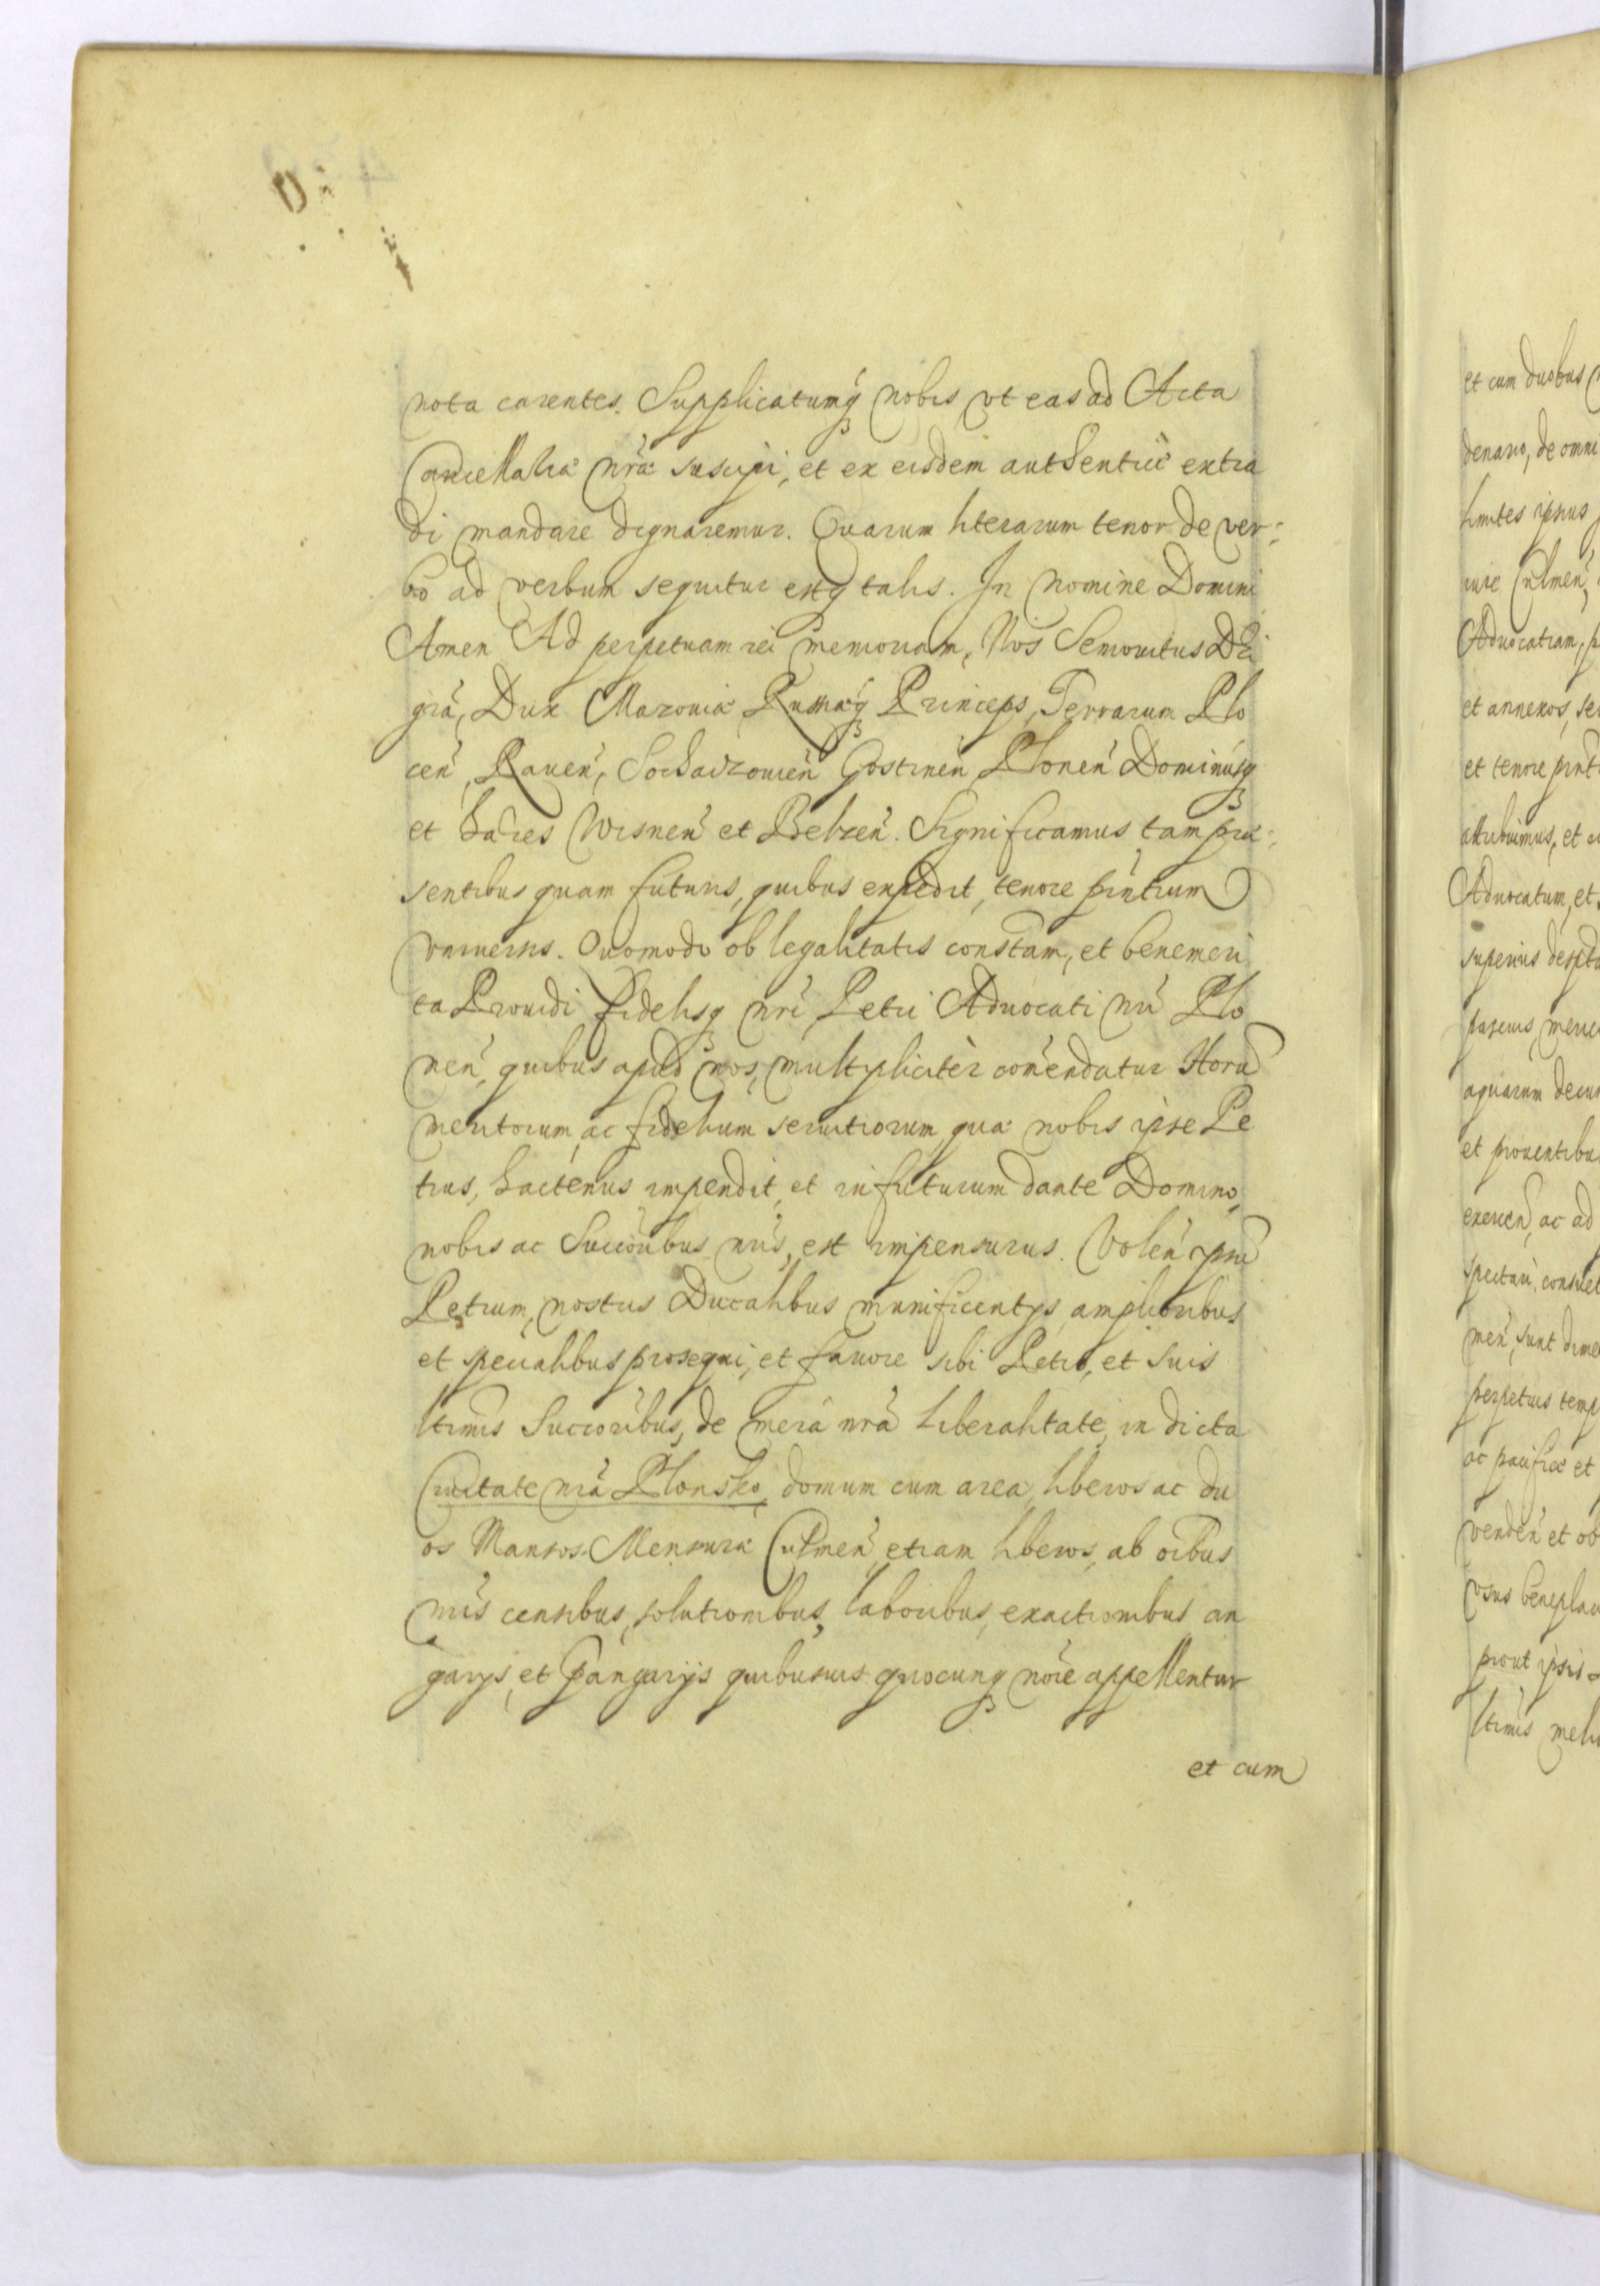 nota carentes. Supplicatumq́ nobis vt eas ad Acta
Cancellariæ nr̃æ suscipi, et ex eisdem authenticè extra
di mandare dignaremur. Quarum literarum tenor de ver-
bo ad verbum sequitur estq talis. In Nomine Domini
Amen Ad perpetuam rei memoriam, Nos Semouitus Dei
gr̃a, Dux Mazouiæ Russiæq́ Princeps, Terrarum Plo
cen̄, Rauen̄, Sochaczouien̄ Gostinen̄ Plonen̄ Dominusq́
et hæres Wisnen̄ et Belzen̄. Significamus tam præ-
sentibus quam futuris, quibus expedit, tenore pñtium
vniuersis. Quomodo ob legalitatis constãm, et benemeri
ta Prouidi Fidelisq nr̃i Petri Aduocati nr̃i Plo
nen̄, quibus apud nos, multiplicitèr com̃endatur Horũ
meritorum, ac fidelium seruitiorum, quæ nobis ipse Pe
trus, hactenus impendit, et in futurum dante Domino,
nobis ac Succor̃ibus nr̃is, est impensurus. Volen̄ ipsũ
Petrum, nostris Ducalibus munificentys amplioribus
et specialibus prosequi, et fauore sibi Petro, et suis
ltimis Succor̃ibus, de merâ nr̃â liberalitate, in dicta
Ciuitate nr̃â Plonsko, domum cum area, liberos ac du
os Mansos Mensuræ Culmen̄, etiam liberos, ab oĩbus
nr̃is censibus, solutionibus, laboribus, exactionibus an
garys, et Pangarijs quibusuis quocunq nõie appellentur
et cum
et cum duobus
denario, de omni
limites ipsius
iure Culmen̄,
Aduocatiam,
et annexos,
et tenore pñt
attribuimus, et
Aduocatum, et
superius
aquarum decur
et prouentibus
exercen̄, ac ad
men̄, sunt dime
perpetuis temp
ac pacificè et
venden̄ et ob
vsus beneplaci
prout ipsis
ltimis meli